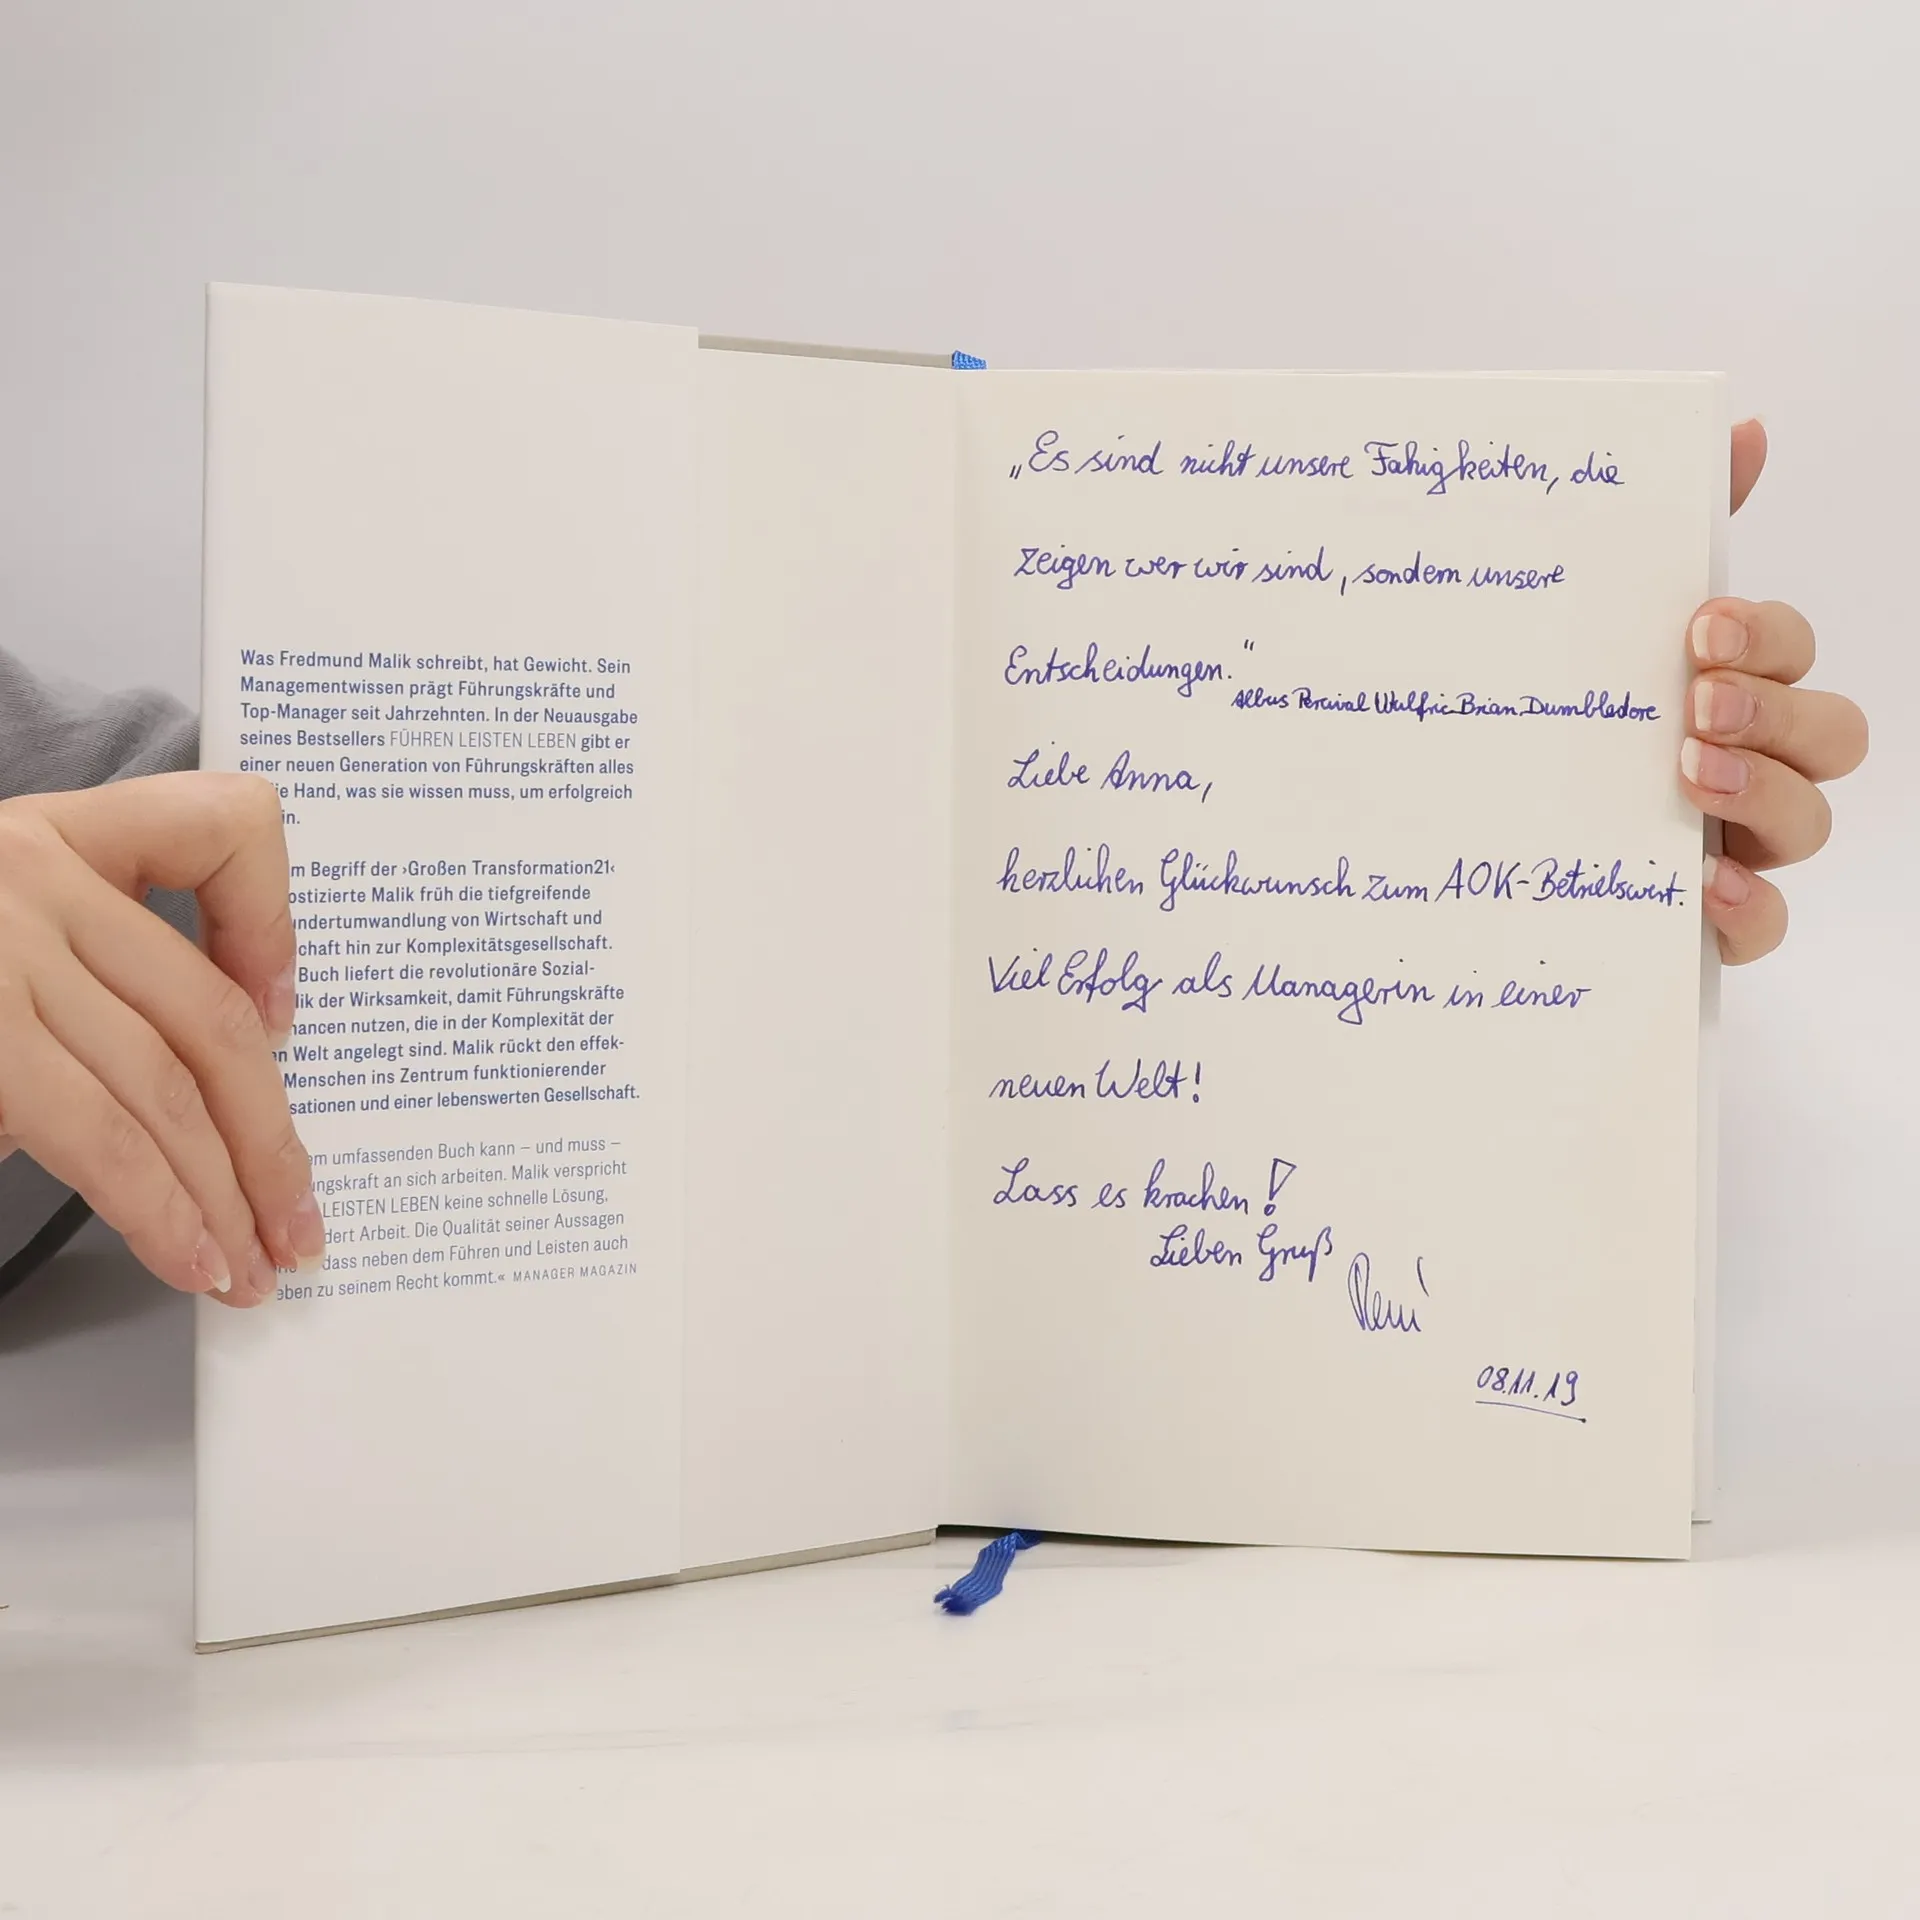 Was Fredmund Malik schreibt, hat Gewicht. Sein
Managementwissen prägt Führungskräfte und
Top-Manager seit Jahrzehnten. In der Neuausgabe
seines Bestsellers FÜHREN LEISTEN LEBEN gibt er
einer neuen Generation von Führungskräften alles
ie Hand, was sie wissen muss, um erfolgreich
in.
m Begriff der ›Großen Transformation21‹
ostizierte Malik früh die tiefgreifende
undertumwandlung von Wirtschaft und
chaft hin zur Komplexitätsgesellschaft.
Buch liefert die revolutionäre Sozial-
ik der Wirksamkeit, damit Führungskräfte
hancen nutzen, die in der Komplexität der
en Welt angelegt sind. Malik rückt den effek-
Menschen ins Zentrum funktionierender
sationen und einer lebenswerten Gesellschaft.
em umfassenden Buch kann – und muss –
ngskraft an sich arbeiten. Malik verspricht
LEISTEN LEBEN keine schnelle Lösung,
dert Arbeit. Die Qualität seiner Aussagen
dass neben dem Führen und Leisten auch
eben zu seinem Recht kommt.« MANAGER MAGAZIN
„Es sind nicht unsere Fahigkeiten, die
zeigen wer wir sind, sondern unsere
Entscheidungen."
Albus Percival Wulfric Brian Dumbledore
Liebe Anna,
herzlichen Glückwunsch zum AOK-Betriebswirt.
Viel Erfolg als Managerin in einer
neuen Welt!
Lass es krachen!
Lieben Gruß
René
08.11.19